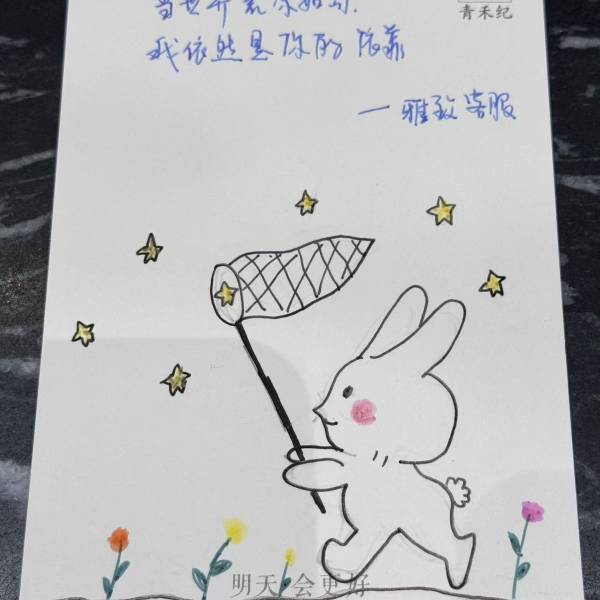 青禾纪
我依然是你的依靠
一雅致客服
明天·会更好